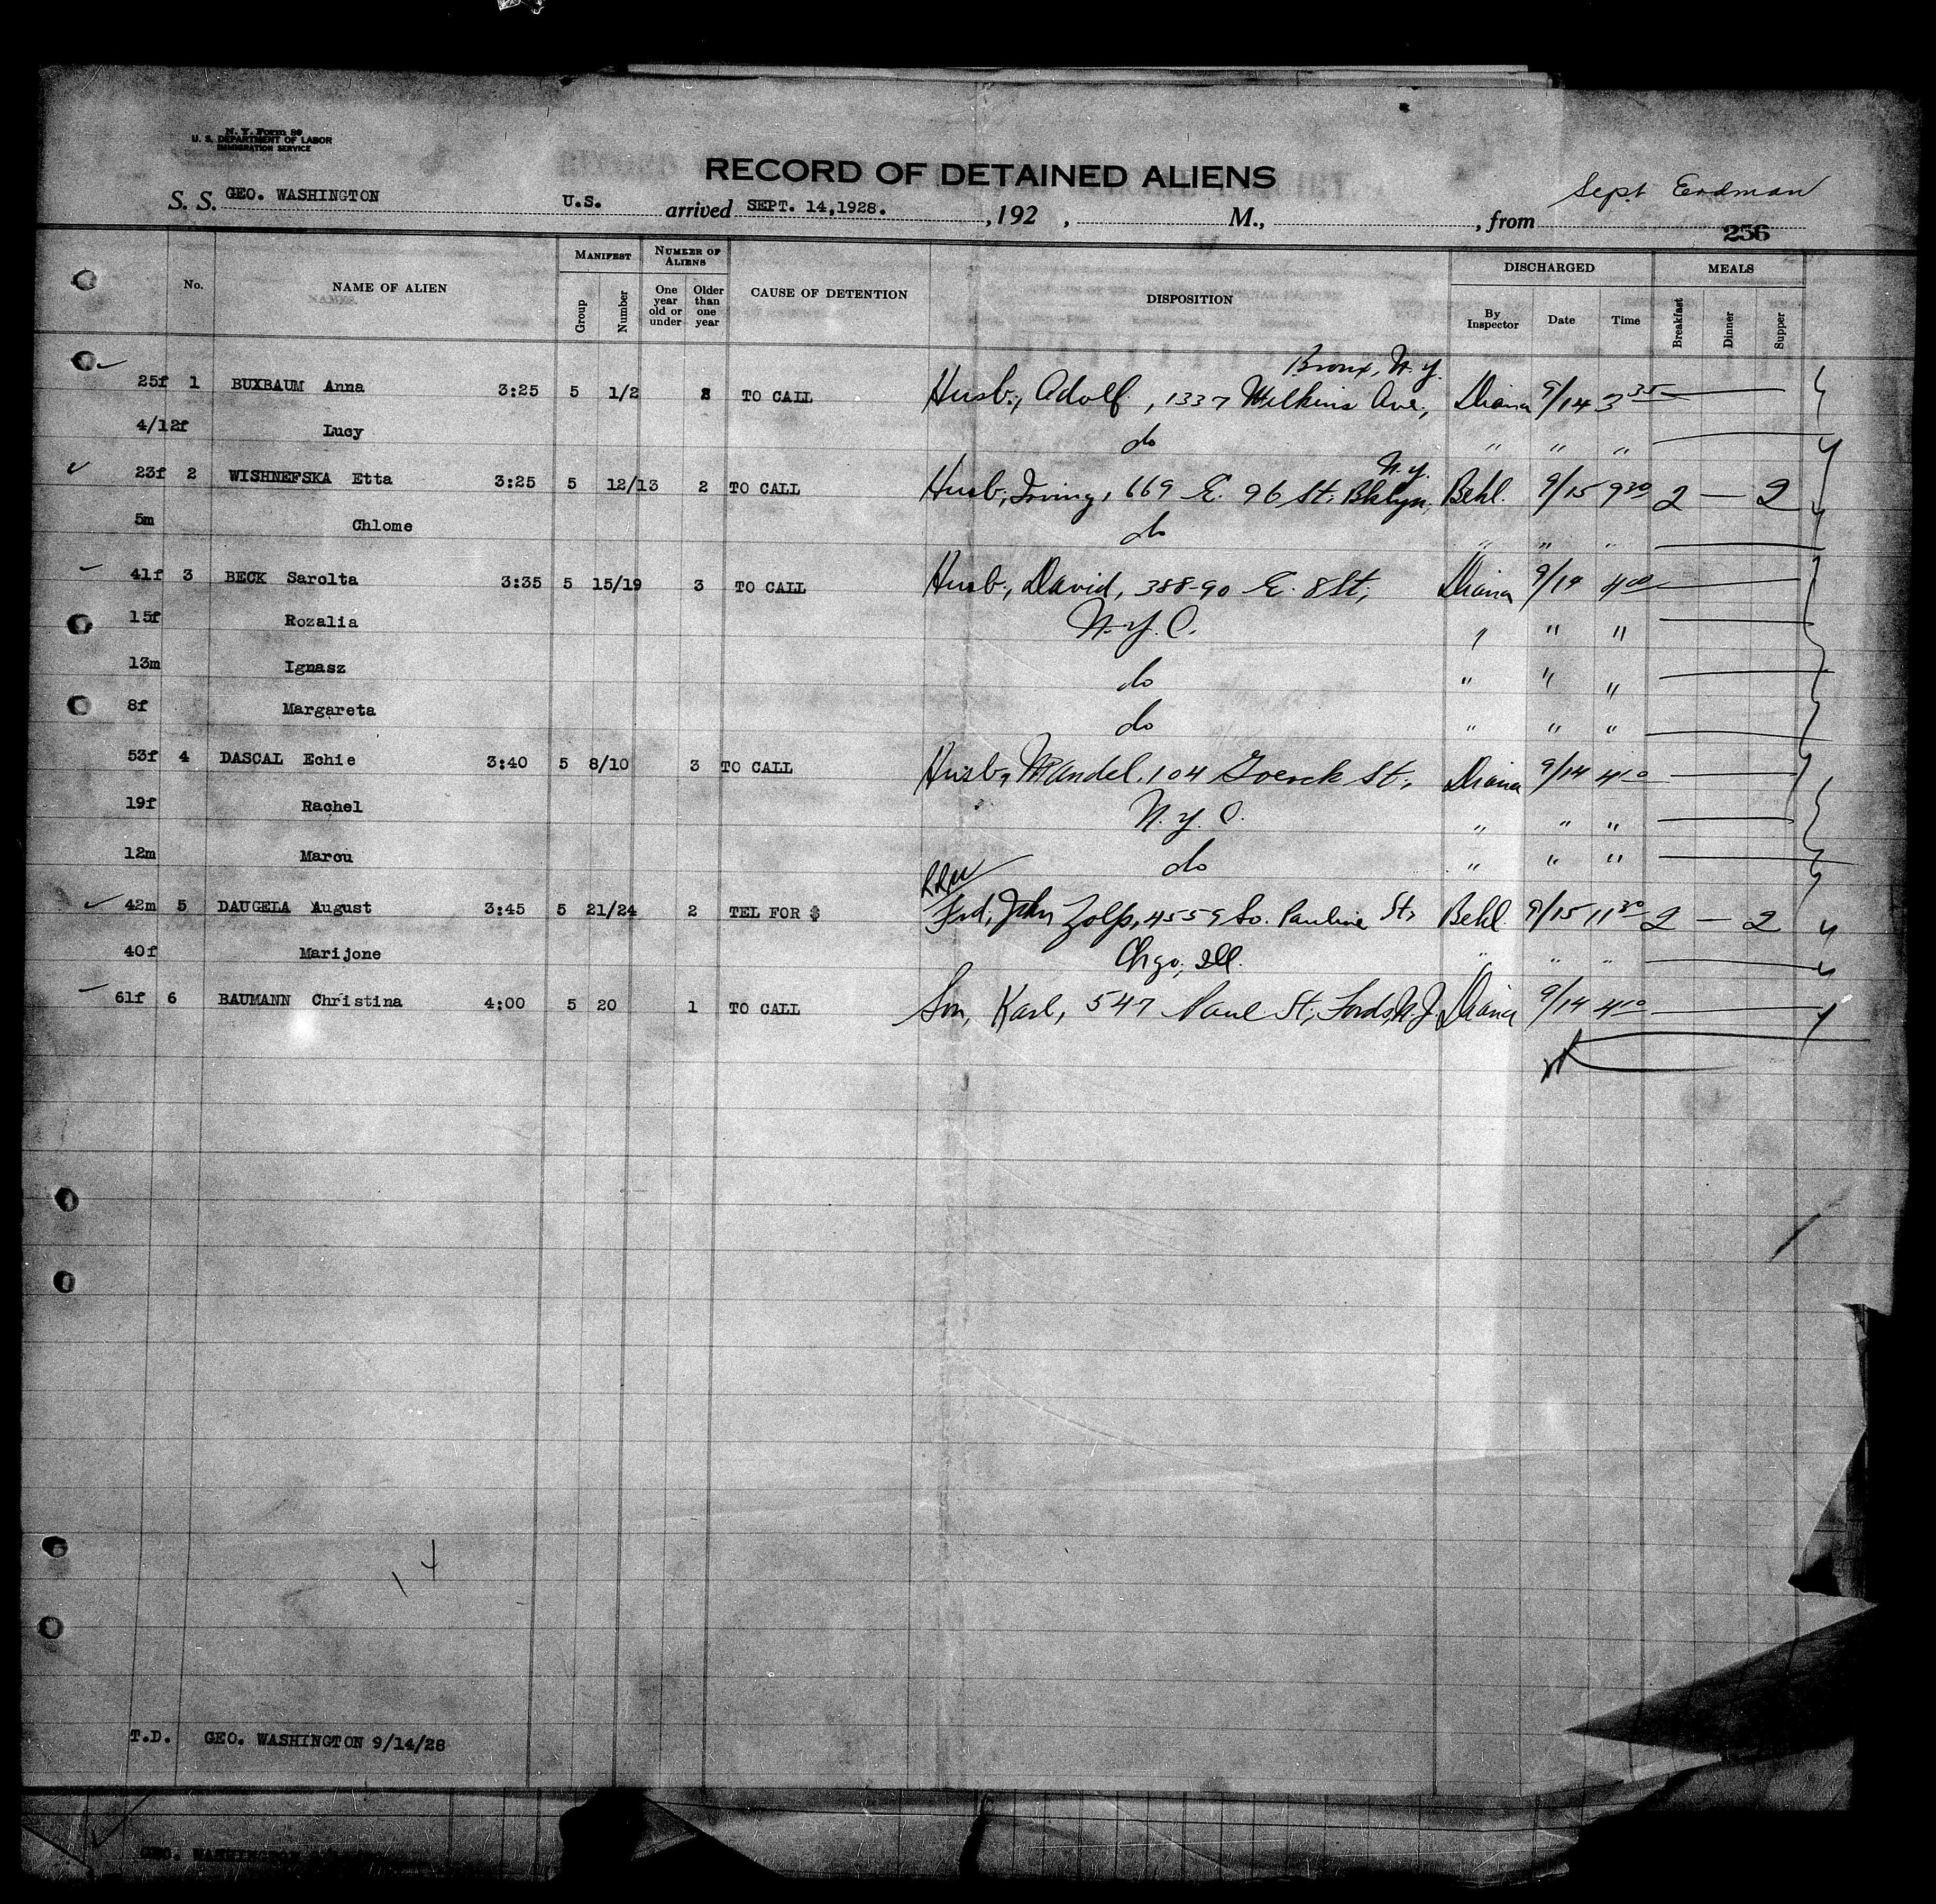 N. Y. Form 89
U. S. DEPARTMENT OF LABOR
IMMIGRATION SERVICE
RECORD OF DETAINED ALIENS
Sept Erdman
S. S. GEO. WASHINGTON U.S. arrived SEPT. 14,1928. , 192 , M., , from
256
No. NAME OF ALIEN MANIFEST NUMBER OF ALIENS CAUSE OF DETENTION DISPOSITION DISCHARGED MEALS
Group Number One year old or under Older than one year By Inspector Date Time Breakfast Dinner Supper
Bronx, N.Y.
25f 1 BUXBAUM Anna 3:25 5 1/2 2 TO CALL Husb., Adolf, 1337 Wilkins Ave., Diana 9/14 3 35
4/12f Lucy do " " "
N.Y.
23f 2 WISHNEFSKA Etta 3:25 5 12/13 2 TO CALL Husb, Irving, 669 E. 96 St. Bklyn, Behl. 9/15 9 30 2 — 2
5m Chlome do " " "
41f 3 BECK Sarolta 3:35 5 15/19 3 TO CALL Husb., David, 388-90 E. 8 St, Diana 9/14 4 00
15f Rozalia N.Y.C. " " "
13m Ignasz do " " "
8f Margareta do " " "
53f 4 DASCAL Echie 3:40 5 8/10 3 TO CALL Husb, Mandel. 104 Goerck St, Diana 9/14 4 10
19f Rachel N.Y.C. " " "
12m Marcu do " " "
42m 5 DAUGELA August 3:45 5 21/24 2 TEL FOR $ Frd, John Zolp, 4559 So. Paulina St, Behl 9/15 11 30 2 — 2
40f Marijone Chgo, Ill. " " "
61f 6 BAUMANN Christina 4:00 5 20 1 TO CALL Son, Karl, 547 St, Fords, N.J. Diana 9/14 4 10
T.D. GEO. WASHINGTON 9/14/28
GEO. WASHINGTON